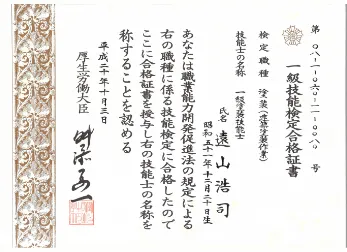 第 〇八-一-〇六〇-一一-〇〇八〇 号
一級技能検定合格証書
検定職種 塗装(建築塗装作業)
技能士の名称 一級塗装技能士
氏名 遠山浩司
昭和五十一年十二月二十日生
あなたは職業能力開発促進法の規定による
右の職種に係る技能検定に合格したので
ここに合格証書を授与し右の技能士の名称を
称することを認める
平成二十年十月三日
厚生労働大臣